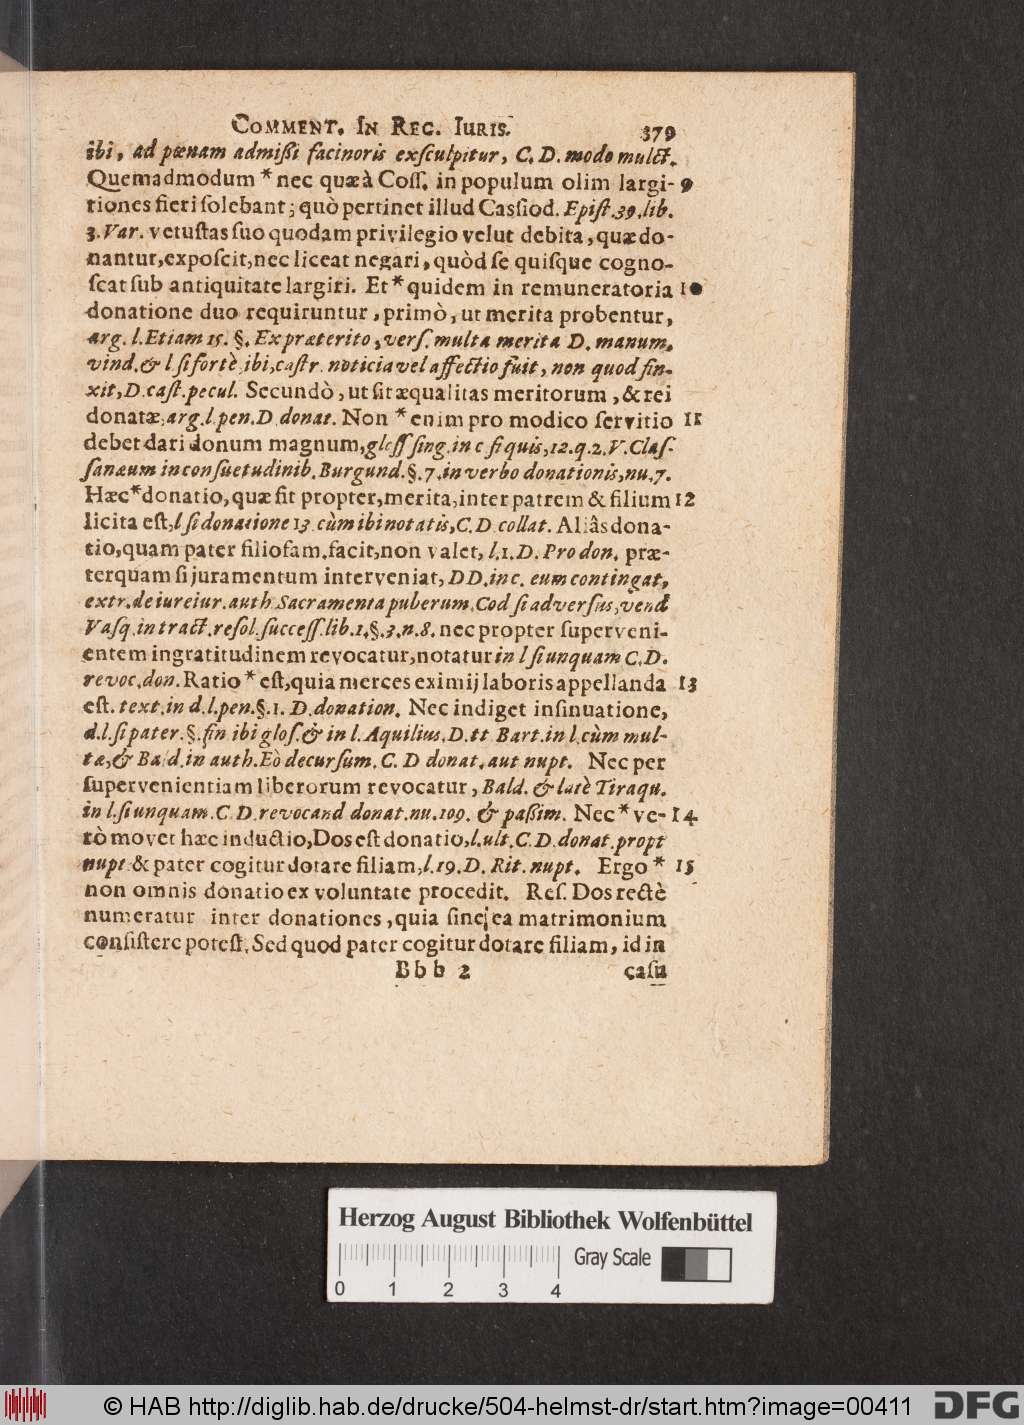 COMMENT. IN REG. IURIS. 379
ibi, ad pœnam admißi facinoris exſculpitur, C. D. modo mulct.
Quemadmodum * nec quæ à Coſſ. in populum olim largi- 9
tiones fieri ſolebant; quò pertinet illud Caſſiod. Epiſt. 39. lib.
3. Var. vetuſtas ſuo quodam privilegio velut debita, quæ do-
nantur, expoſcit, nec liceat negari, quòd ſe quiſque cogno-
ſcat ſub antiquitate largiri. Et * quidem in remuneratoria 10
donatione duo requiruntur, primò, ut merita probentur,
arg. l. Etiam 15. §. Ex præterito, verſ. multa merita D. manum.
vind. & l ſi fortè ibi, caſtr. noticia vel affectio fuit, non quod fin-
xit, D. caſt. pecul. Secundò, ut ſit æqualitas meritorum, & rei
donatæ, arg. l. pen. D. donat. Non * enim pro modico ſervitio 11
debet dari donum magnum, gloſſ ſing. in c ſi quis, 12. q. 2. V. Claſ-
ſanæum in conſuetudinib. Burgund. §. 7. in verbo donationis, nu. 7.
Hæc * donatio, quæ fit propter, merita, inter patrem & filium 12
licita eſt, l ſi donatione 13 cùm ibi notatis, C. D collat. Aliâs dona-
tio, quam pater filiofam. facit, non valet, l. 1. D. Pro don. præ-
terquam ſi juramentum interveniat, DD. in c. eum contingat,
extr. de iureiur. auth Sacramenta puberum. Cod ſi adverſus, vend
Vaſq. in tract. reſol. ſucceſſ. lib. 1. §. 3. n. 8. nec propter ſuperveni-
entem ingratitudinem revocatur, notatur in l ſi unquam C. D.
revoc. don. Ratio * eſt, quia merces eximij laboris appellanda 13
eſt. text. in d. l. pen. §. 1. D. donation. Nec indiget inſinuatione,
d. l. ſi pater. §. fin ibi gloſ. & in l. Aquilius. D. tt Bart. in l. cùm mul-
ta, & Bald. in auth. Eò decurſum. C. D donat. aut nupt. Nec per
ſupervenientiam liberorum revocatur, Bald. & latè Tiraqu.
in l. ſi unquam. C. D. revocand donat. nu. 109. & paßim. Nec * ve- 14
rò movet hæc inductio, Dos eſt donatio, l. ult. C. D. donat. propt
nupt. & pater cogitur dotare filiam, l. 19. D. Rit. nupt. Ergo * 15
non omnis donatio ex voluntate procedit. Reſ. Dos rectè
numeratur inter donationes, quia ſine ea matrimonium
conſiſtere poteſt. Sed quod pater cogitur dotare filiam, id in
Bbb 2 caſu
Herzog August Bibliothek Wolfenbüttel
Gray Scale
0 1 2 3 4
© HAB http://diglib.hab.de/drucke/504-helmst-dr/start.htm?image=00411
DFG